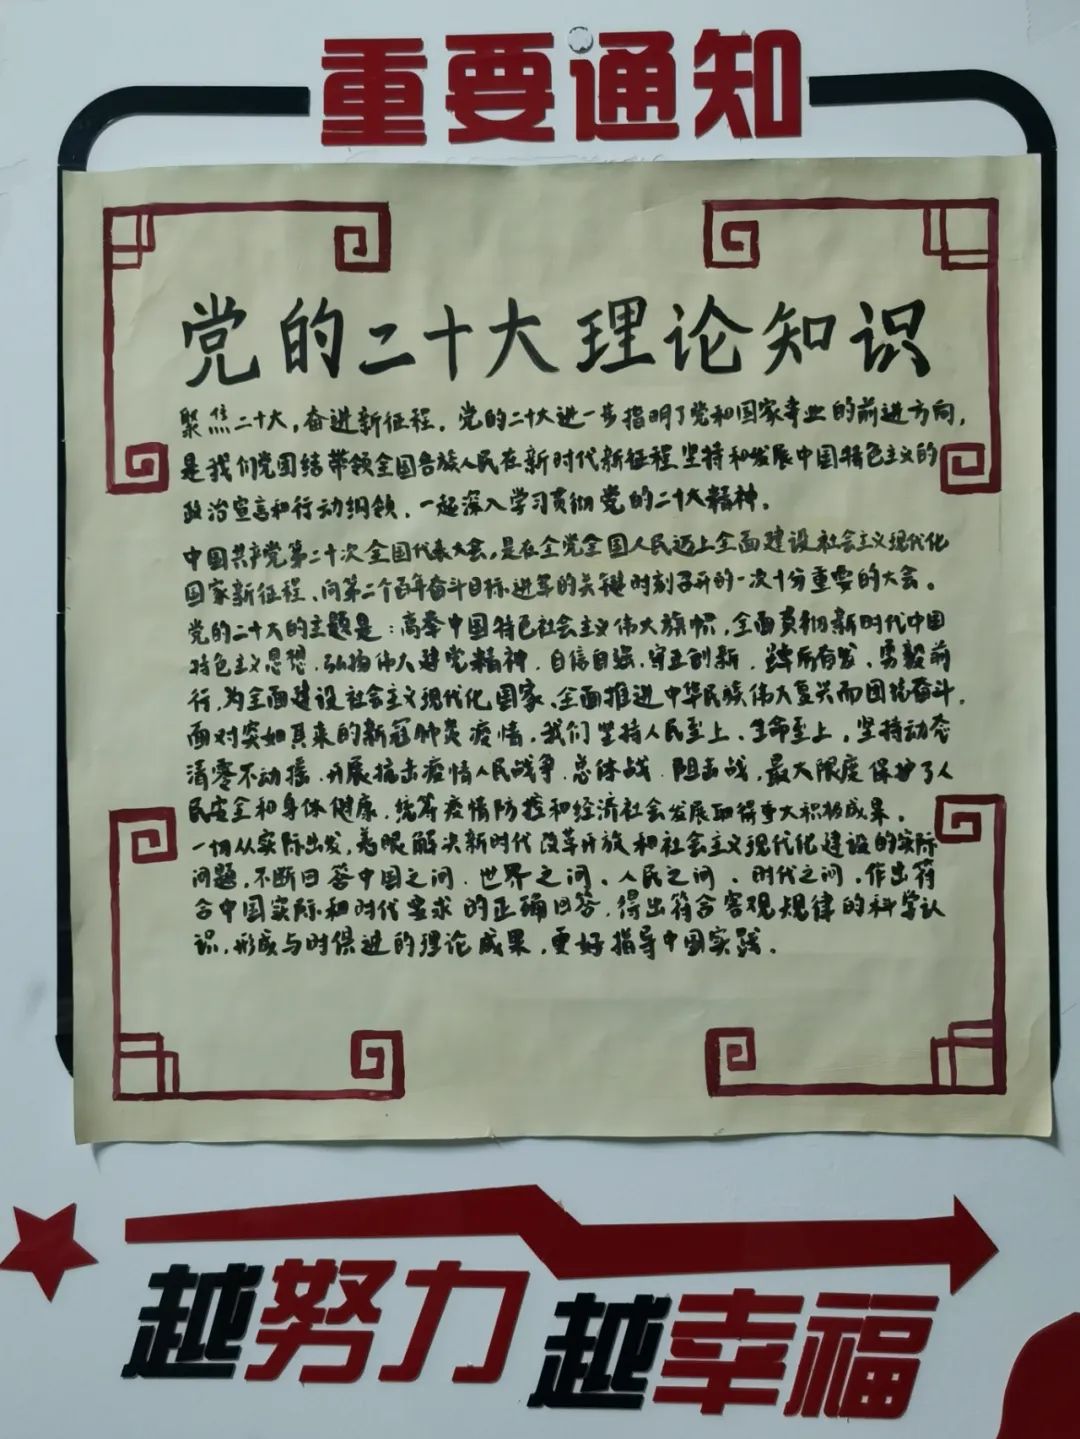 重要通知
党的二十大理论知识
聚焦二十大，奋进新征程。党的二十大进一步指明了党和国家事业的前进方向，
是我们党团结带领全国各族人民在新时代新征程坚持和发展中国特色主义的
政治宣言和行动纲领，一起深入学习贯彻党的二十大精神。
中国共产党第二十次全国代表大会，是在全党全国人民迈上全面建设社会主义现代化
国家新征程、向第二个百年奋斗目标进军的关键时刻召开的一次十分重要的大会。
党的二十大的主题是：高举中国特色社会主义伟大旗帜，全面贯彻新时代中国
特色主义思想，弘扬伟大建党精神，自信自强、守正创新，踔厉奋发、勇毅前
行，为全面建设社会主义现代化国家、全面推进中华民族伟大复兴而团结奋斗。
面对突如其来的新冠肺炎疫情，我们坚持人民至上、生命至上，坚持动态
清零不动摇，开展抗击疫情人民战争、总体战、阻击战，最大限度保护了人
民安全和身体健康，统筹疫情防控和经济社会发展取得重大积极成果。
一切从实际出发，着眼解决新时代改革开放和社会主义现代化建设的实际
问题，不断回答中国之问、世界之问、人民之问、时代之问，作出符
合中国实际和时代要求的正确回答，得出符合客观规律的科学认
识，形成与时俱进的理论成果，更好指导中国实践。
越努力
越幸福